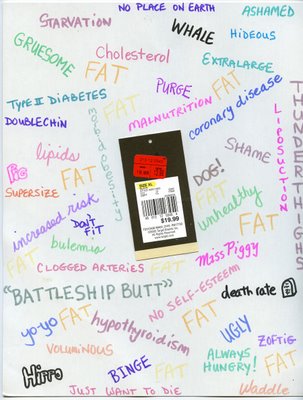 NO PLACE ON EARTH
ASHAMED
STARVATION
WHALE
HIDEOUS
GRUESOME
Cholesterol
EXTRALARGE
FAT
PURGE
FAT
TYPE II DIABETES
coronary disease
FAT
MALNUTRITION
DOUBLECHIN
morbid obesity
LIPOSUCTION
THUNDER THIGHS
lipids
SHAME
PIG
FAT
DOG!
SUPERSIZE
SIZE XL
$19.99
FAT
unhealthy
increased risk
DON'T FIT
FAT
bulemia
Miss Piggy
FAT
CLOGGED ARTERIES
FAT
"BATTLESHIP BUTT"
NO SELF-ESTEEM
death rate
FAT
yo-yo
FAT
hypothyroidism
UGLY
FAT
ZOFTIG
VOLUMINOUS
ALWAYS HUNGRY!
FAT
HIPPO
BINGE
FAT
JUST WANT TO DIE
Waddle